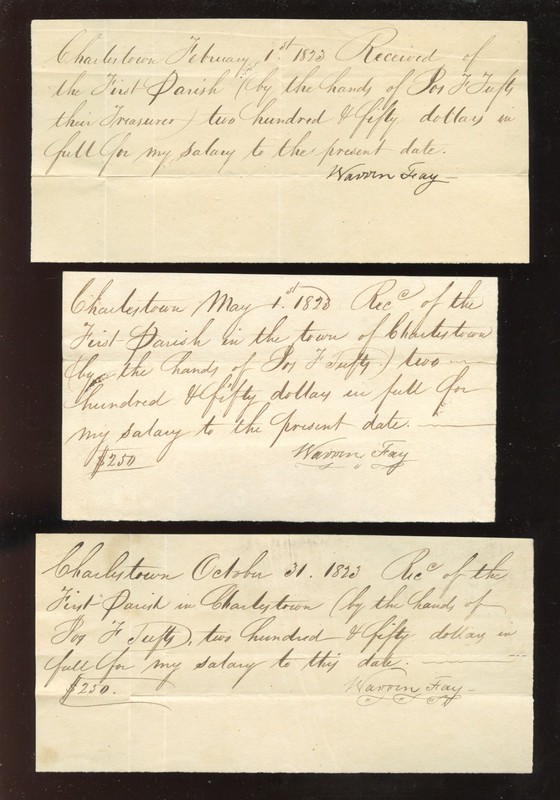 Charlestown February 1.st 1823 Received of
the First Parish (by the hands of Jos F Tufts
their Treasurer) two hundred & fifty dollars in
full for my salary to the present date.
Warren Fay
Charlestown May 1.st 1823 Recd of the
First Parish in the town of Charlestown
(by the hands of Jos F Tufts) two
hundred & fifty dollars in full for
my salary to the present date.
$250 Warren Fay
Charlestown October 31. 1823 Recd of the
First Parish in Charlestown (by the hands of
Jos F Tufts), two hundred & fifty dollars in
full for my salary to this date.
$250. Warren Fay